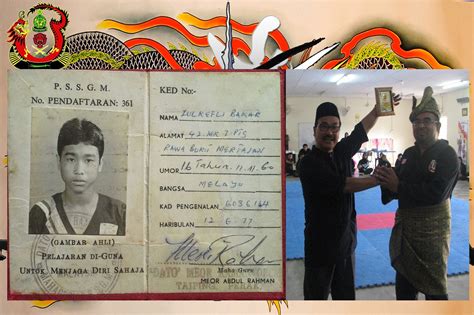 P.S.S.G.M.
No. PENDAFTARAN: 361
(GAMBAR AHLI)
PELAJARAN DI-GUNA
UNTOK MENJAGA DIRI SAHAJA
KED No:-
NAMA ZULKEFLI BAKAR
ALAMAT
UMUR 16 Tahun. 11.11.60
BANGSA MELAYU
KAD PENGENALAN 6036164
HARIBULAN 12.6.77
Maha Guru
MEOR ABDUL RAHMAN
DATO' MEOR
TAIPING, PERAK.